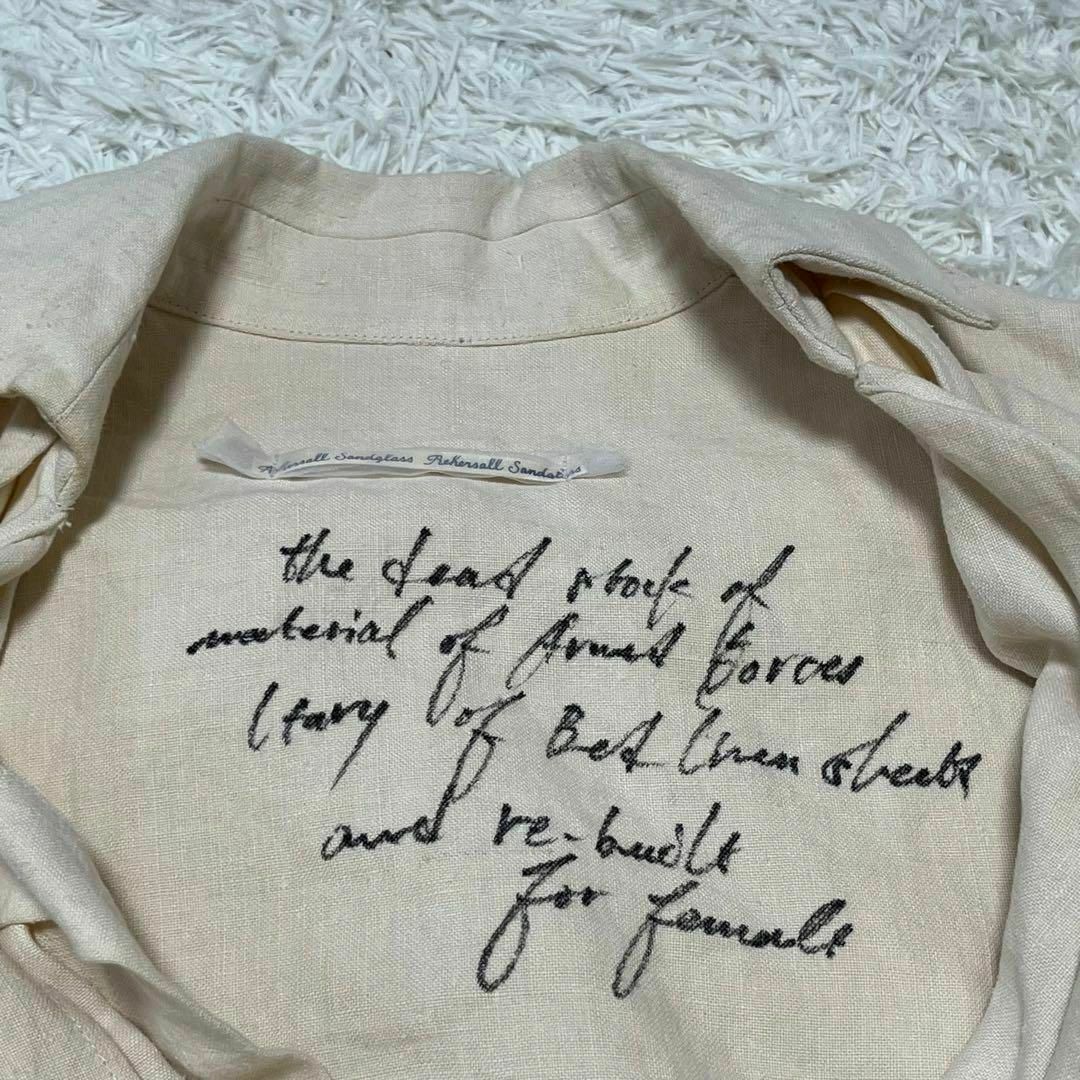 Rehersall Sandglass Rehersall Sandglass
the dead stock of
material of Armed Forces
Itary of Bed linen sheets
and re-built
for female